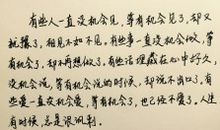 有些人一直没机会见,等有机会见了,却又
犹豫了,相见不如不见。有些事一直没机会做,等
有机会了,却不再想做了。有些话埋藏在心中好久,
没机会说,等有机会说的时候,却说不出口了。有
些爱一直没机会爱,等有机会了,已经不爱了。人生
有时候,总是很讽刺。